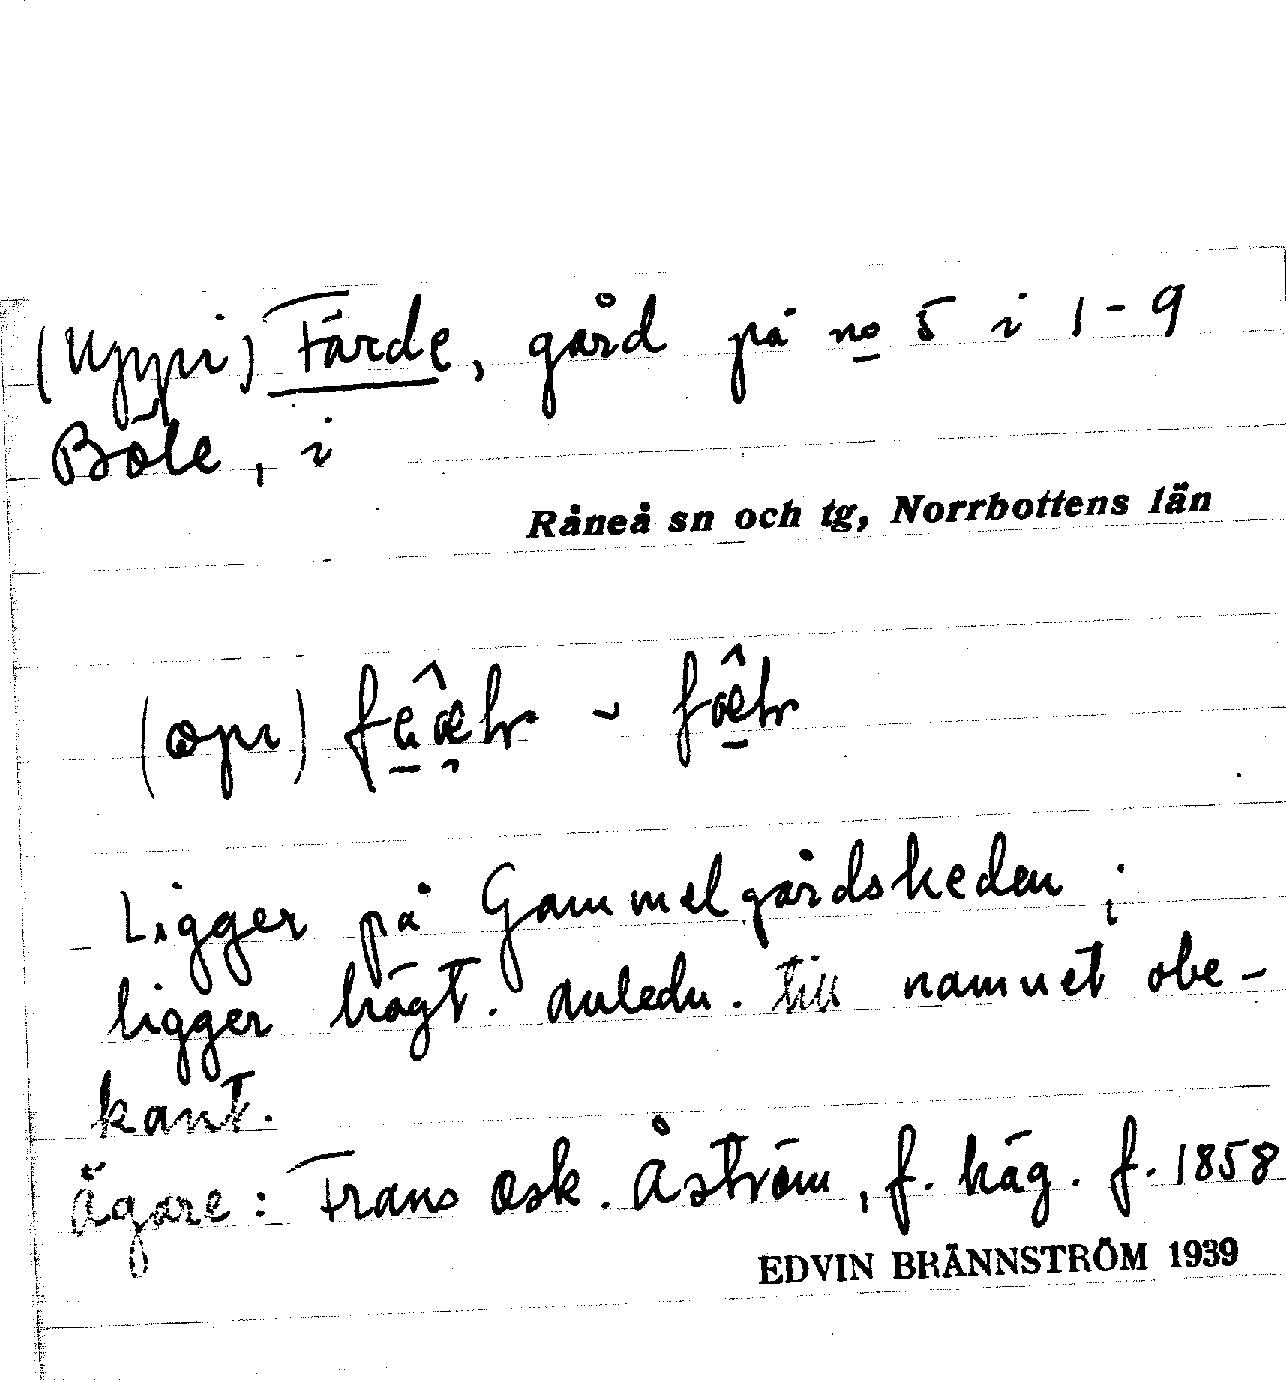 (Uppi) Färde, gård på no 5 i 1-9
Böle, i
Råneå sn och tg, Norrbottens län
Ligger på Gammelgårdsheden;
ligger högt. Anledn. till namnet obe-
kant.
Ägare: Frans Osk. Åström, f. häg. f. 1858
EDVIN BRÄNNSTRÖM 1939